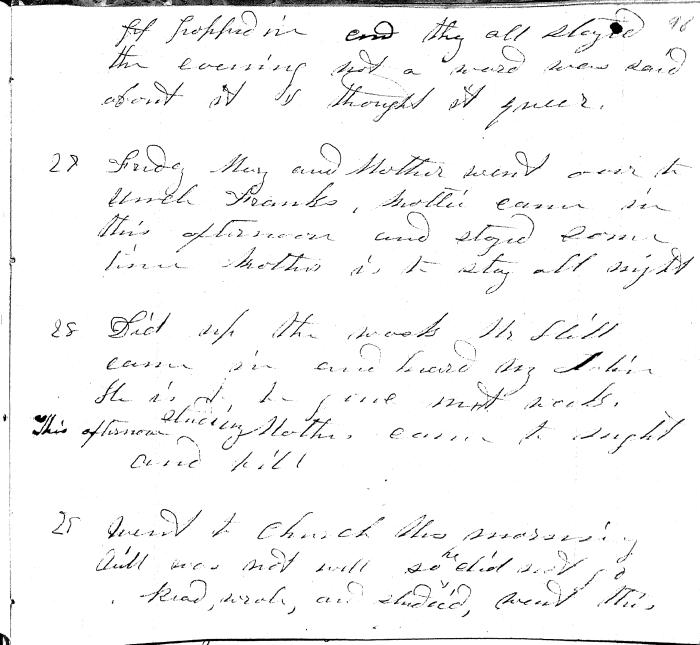 96
in and they all stayed
the evening not a word was said
about it I thought it queer.
27 Friday Mary and Mother went over to
Uncle Franks, Mottie came in
this afternoon and stayed some
time Mother is to stay all night
28 Did up the work Mr Still
came in and heard my
He is to be gone next week.
This afternoon studying Mother came to night
and Will
29 Went to church this morning
Will was not well so he did not go
Read, wrote, and studied, went this